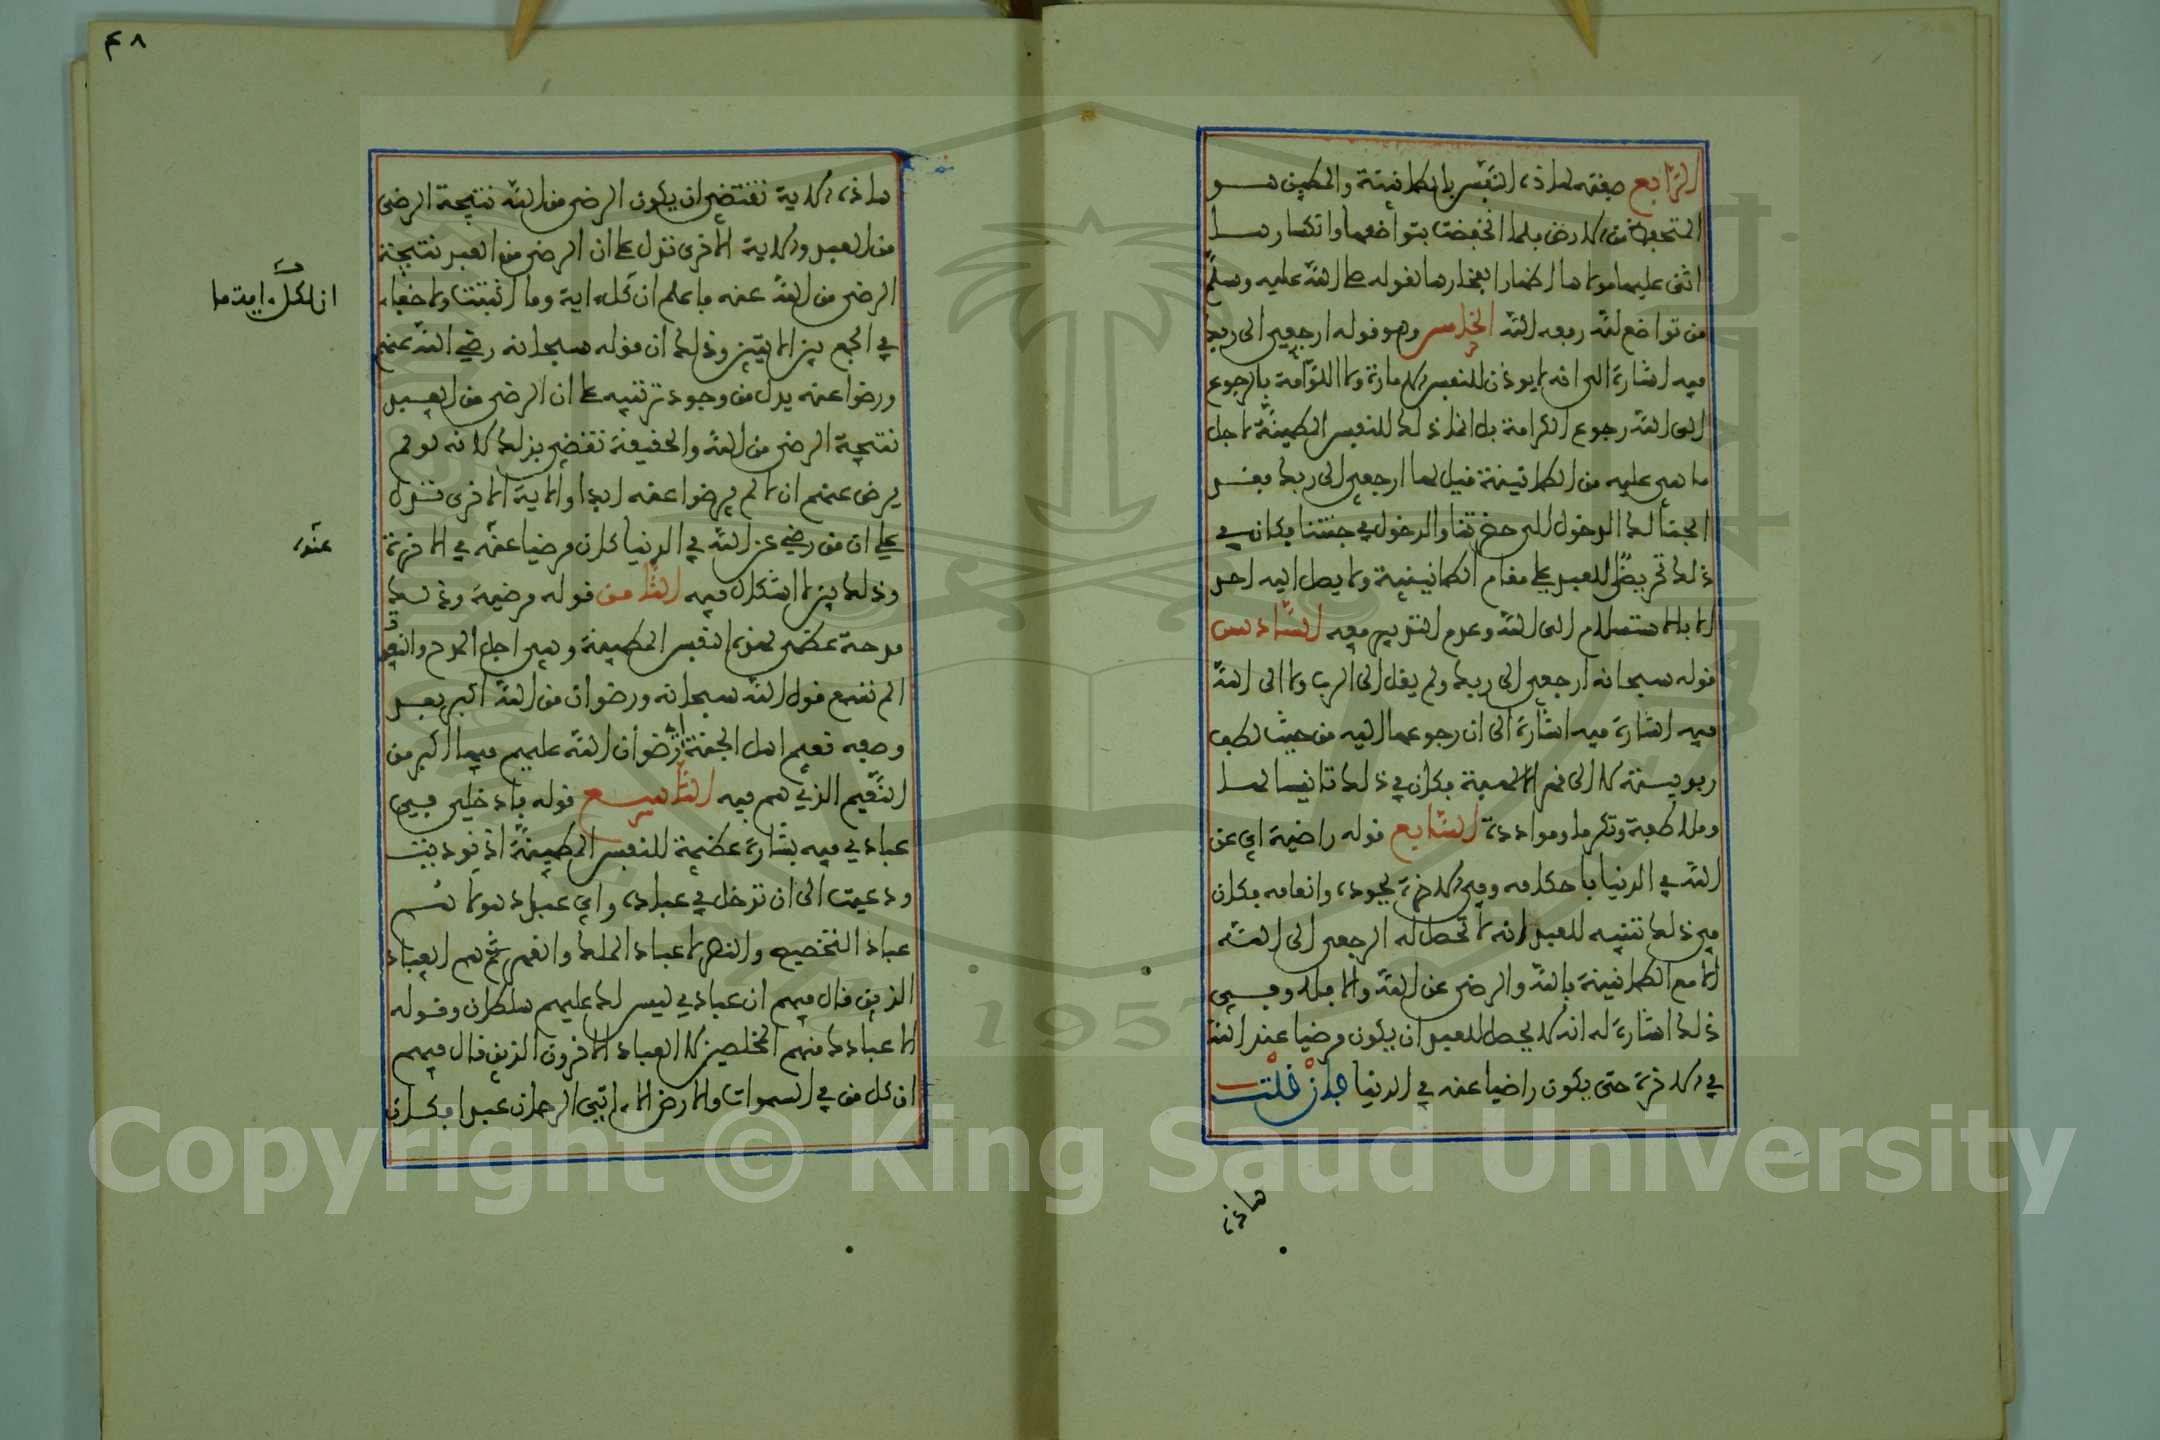 الرابع صفته لهاذه النفس بالطمانينة والمطمين هو
المنخفض من الارض فلما انخفضت بتواضعها وانكسارها
اثنى عليها مولاها اظهارا لفخارها لقوله صلى الله عليه وسلم
من تواضع لله رفعه الله الخامس وهو قوله ارجعي الى ربك
فيه اشارة الى انه لا يوذن للنفس الامارة ولا اللوامة بالرجوع
الى الله رجوع الكرامة بل انما ذلك للنفس المطمينة لاجل
ما هي عليه من الطمانينة قيل لها ارجعي الى ربك فقد
ابحنا لك الدخول الى حضرتنا والدخول في جنتنا فكان في
ذلك تحريض للعبد على مقام الطمانينة ولا يصل اليه احد
الا بالاستسلام الى الله وعدم التدبير معه السادس
قوله سبحانه ارجعي الى ربك ولم يقل الى الرب ولا الى الله
فيه اشارة فيه اشارة الى ان رجوعها اليه من حيث لطف
ربوبيته لا الى قهر الاهيته فكان في ذلك تانيسا لها
وملاطفة وتكرما وموادة السابع قوله راضية اي عن
الله في الدنيا باحكامه وفي الاخرة بجوده وانعامه فكان
في ذلك تنبيه للعبد انه لا تحصل له الرجعى الى الله
الا مع الطمانينة بالله والرضى عن الله والا فلا وفي
ذلك اشارة له انه لا يحصل للعبد ان يكون مرضيا عند الله
في الاخرة حتى يكون راضيا عنه في الدنيا فان قلت
هاذه
٤٨
هاذه الاية تقتضي ان يكون الرضى من الله نتيجة الرضى
من العبد والاية الاخرى تدل على ان الرضى من العبد نتيجة
الرضى من الله عنه فاعلم ان كل اية وما اثبتت ولا خفاء
في الجمع بين الايتين وذلك ان قوله سبحانه رضي الله عنهم
ورضوا عنه يدل من وجود ترتيبه على ان الرضى من العبد
نتيجة الرضى من الله والحقيقة تقضي بذلك لانه لو لم
يرض عنهم اولا لم يرضوا عنه ابدا والاية الاخرى تدل
على ان من رضي عن الله في الدنيا كان مرضيا عنه في الاخرة
وذلك بين لا اشكال فيه الثامن قوله مرضية وذلك
مدحة عظمى لهذه النفس المطمينة وهي اجل المدح والنعوت
الم تسمع قول الله سبحانه ورضوان من الله اكبر بعد
وصفه نعيم اهل الجنة اي رضوان الله عليهم فيها اكبر من
النعيم الذي هم فيه التاسع قوله فادخلي في
عبادي فيه بشارة عظيمة للنفس المطمينة اذ نوديت
ودعيت الى ان تدخل في عباده واي عباد هولا هم
عباد التخصيص والنصر لا عباد الملك والقهر ثم هم العباد
الذين قال فيهم ان عبادي ليس لك عليهم سلطان وقوله
الا عبادك منهم المخلصين لا العباد الاخرون الذين قال فيهم
ان كل من في السموات والارض الا اتي الرحمان عبدا فكان
ان لكل اية ما
عنده
Copyright © King Saud University
1957